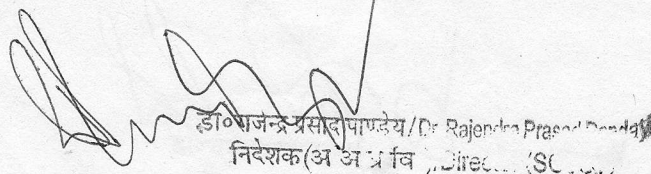 डा० राजेन्द्र प्रसाद पाण्डेय/Dr Rajendra Prasad Panday
निदेशक(अ अ प्र वि